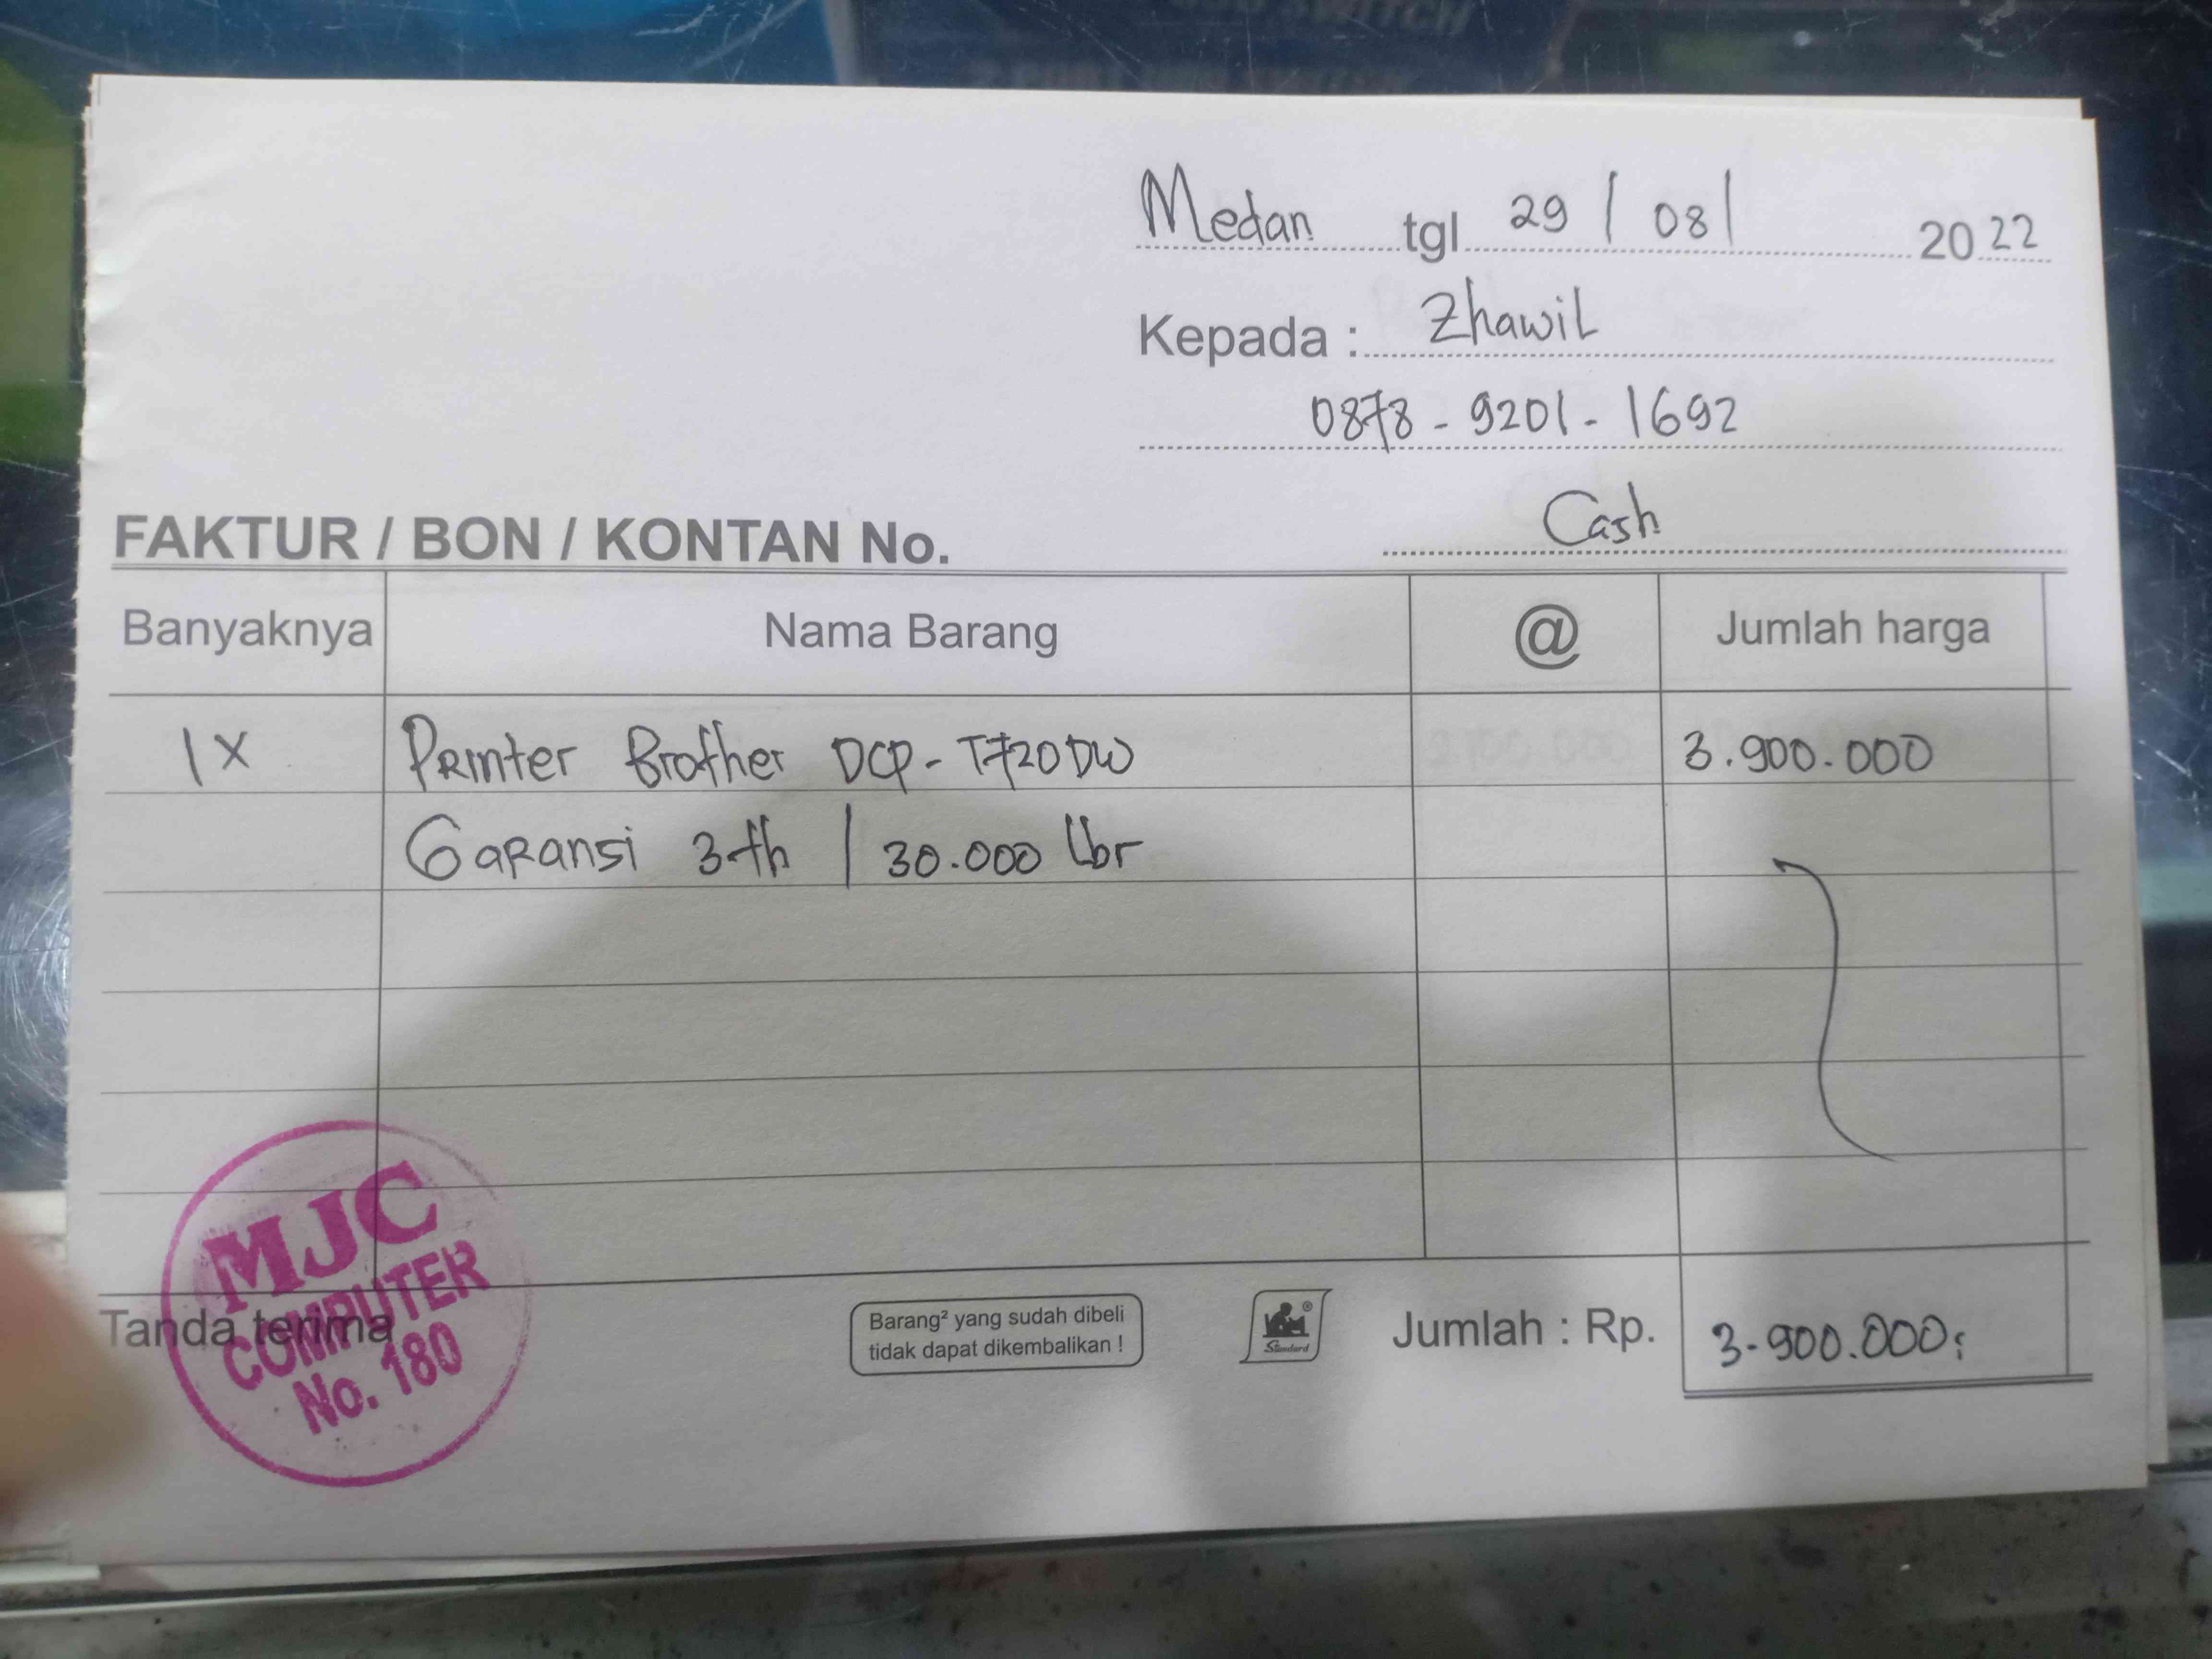 Medan tgl 29 / 08 / 2022
Kepada : Zhawil
0878 - 9201 - 1692
FAKTUR / BON / KONTAN No. Cash
Banyaknya Nama Barang @ Jumlah harga
1 X Printer Brother DCP - T720DW 3.900.000
Garansi 3 th / 30.000 lbr
MJC
COMPUTER
No. 180
Tanda terima
Barang² yang sudah dibeli
tidak dapat dikembalikan !
Standard
Jumlah : Rp. 3-900.000;